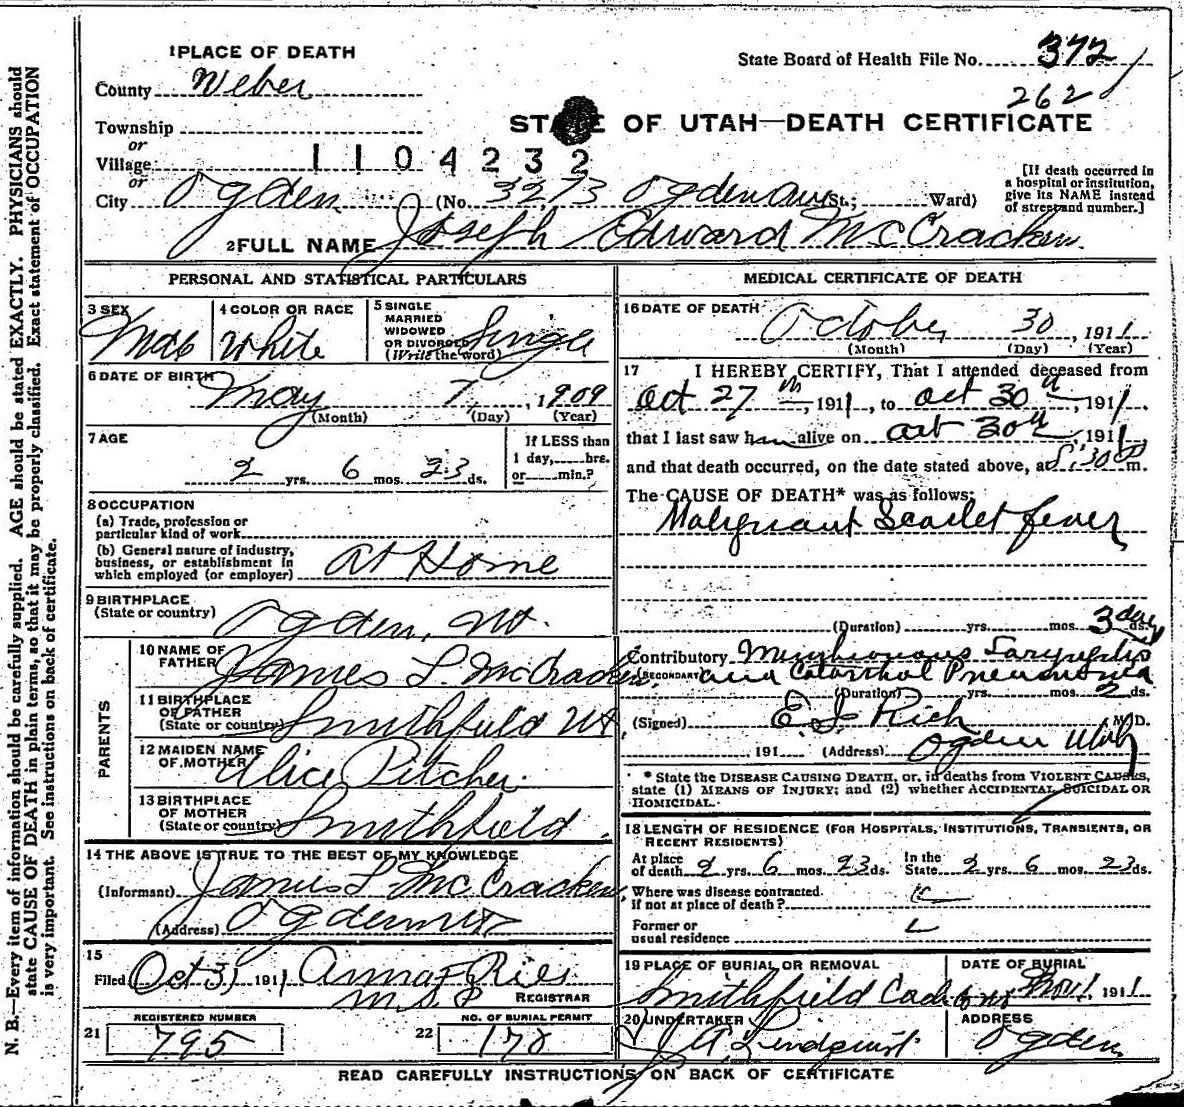 1 PLACE OF DEATH
County Weber
State Board of Health File No. 372
262
STATE OF UTAH—DEATH CERTIFICATE
Township
or
Village
1104232
or
City Ogden (No. 3273 Ogden Ave St.; Ward)
[If death occurred in a hospital or institution, give its NAME instead of street and number.]
2 FULL NAME Joseph Edward McCracken
PERSONAL AND STATISTICAL PARTICULARS
3 SEX Male
4 COLOR OR RACE White
5 SINGLE MARRIED WIDOWED OR DIVORCED (Write the word) Single
6 DATE OF BIRTH May 7, 1909
(Month) (Day) (Year)
7 AGE 2 yrs. 6 mos. 23 ds.
If LESS than 1 day, hrs. or min.?
8 OCCUPATION
(a) Trade, profession or particular kind of work
(b) General nature of industry, business, or establishment in which employed (or employer) At Home
9 BIRTHPLACE (State or country) Ogden, Ut.
PARENTS
10 NAME OF FATHER James L. McCracken
11 BIRTHPLACE OF FATHER (State or country) Smithfield Ut
12 MAIDEN NAME OF MOTHER Alice Pitcher
13 BIRTHPLACE OF MOTHER (State or country) Smithfield
14 THE ABOVE IS TRUE TO THE BEST OF MY KNOWLEDGE
(Informant) James L McCracken
(Address) Ogden Ut
15 Filed Oct 31 1911 Anna F Ries
REGISTRAR
21 REGISTERED NUMBER 795
22 NO. OF BURIAL PERMIT 178
MEDICAL CERTIFICATE OF DEATH
16 DATE OF DEATH October 30, 1911
(Month) (Day) (Year)
17 I HEREBY CERTIFY, That I attended deceased from
Oct 27th, 1911, to Oct 30th, 1911.
that I last saw him alive on Oct 30th, 1911
and that death occurred, on the date stated above, at 5:30 P m.
The CAUSE OF DEATH* was as follows:
Malignant Scarlet fever
(Duration) yrs. mos. 3 days ds.
Contributory Membranous Laryngitis
(SECONDARY) and Catarrhal Pneumonia
(Duration) yrs. mos. 2 ds.
(Signed) E. I. Rich M.D.
191 (Address) Ogden Utah
* State the DISEASE CAUSING DEATH, or, in deaths from VIOLENT CAUSES, state (1) MEANS OF INJURY; and (2) whether ACCIDENTAL, SUICIDAL OR HOMICIDAL.
18 LENGTH OF RESIDENCE (FOR HOSPITALS, INSTITUTIONS, TRANSIENTS, OR RECENT RESIDENTS)
At place of death 2 yrs. 6 mos. 23 ds. In the State 2 yrs. 6 mos. 23 ds.
Where was disease contracted. if not at place of death?
Former or usual residence
19 PLACE OF BURIAL OR REMOVAL Smithfield
DATE OF BURIAL Nov 1 1911
20 UNDERTAKER J A Lindquist
ADDRESS Ogden
READ CAREFULLY INSTRUCTIONS ON BACK OF CERTIFICATE
N. B.—Every item of information should be carefully supplied. AGE should be stated EXACTLY. PHYSICIANS should
state CAUSE OF DEATH in plain terms, so that it may be properly classified. Exact statement of OCCUPATION
is very important. See instructions on back of certificate.